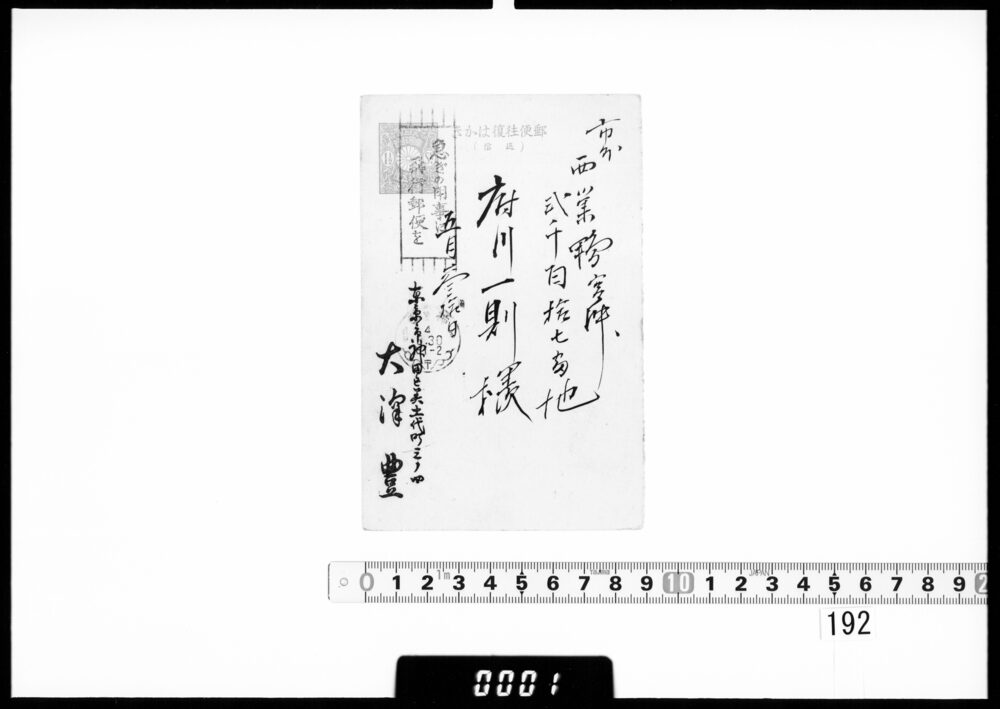 郵便往復はかき
(返信)
市外
西巣鴨宮仲、
弐千百拾七番地
府川一則
様
五月
急ぎの用事は
飛行郵便を
東京市神田区美土代町三ノ四
大澤豊
4
30
-2
0 1 2 3 4 5 6 7 8 9 10 1 2 3 4 5 6 7 8 9 2
1m
JAPAN
192
0001